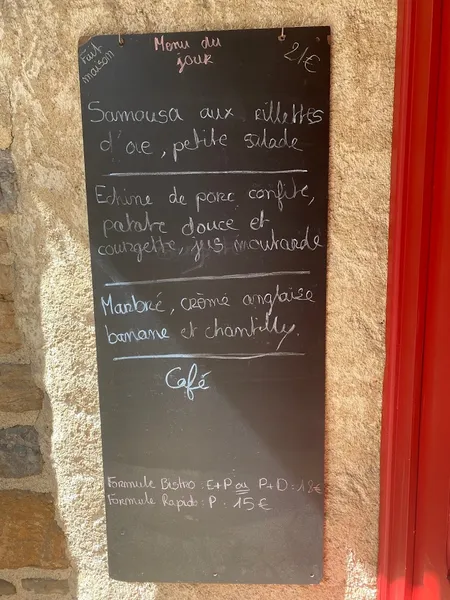 Fait maison
Menu du jour
21€
Samousa aux rillettes
d'oie, petite salade
Echine de porc confite,
patate douce et
courgette, jus moutarde
Marbré, crème anglaise
banane et chantilly.
Café
Formule Bistro : E+P ou P+D = 18€
Formule Rapide : P : 15€